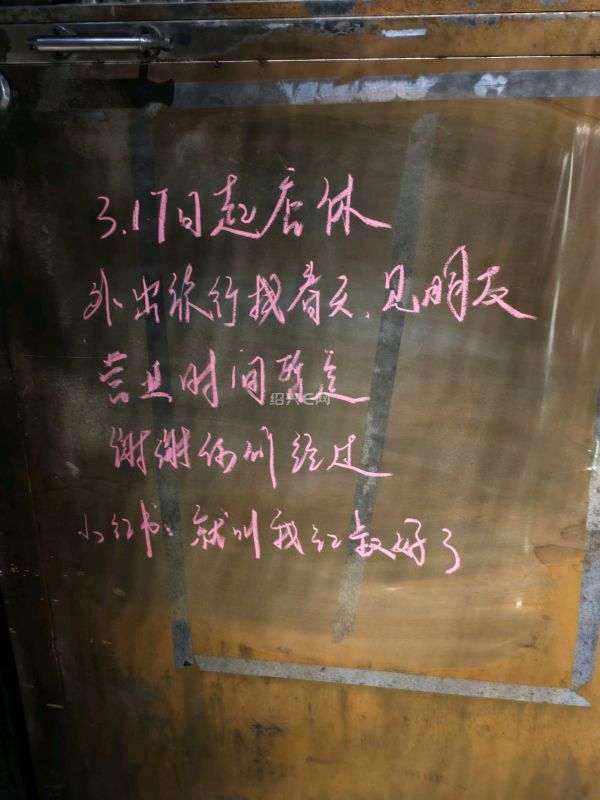 3.17日起店休
外出旅行找春天、见朋友
营业时间暂定
谢谢你们经过
小红书：就叫我红叔好了
绍兴E网